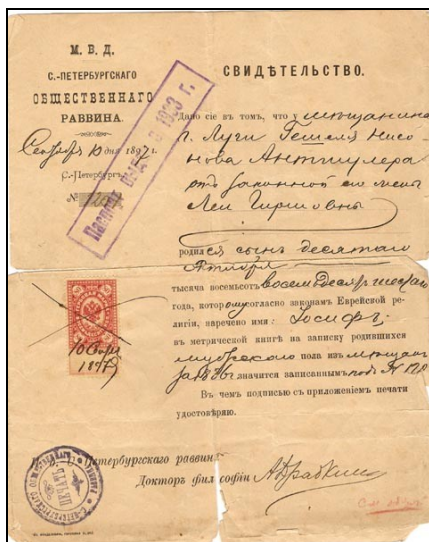 М. В. Д.
С.-ПЕТЕРБУРГСКАГО
ОБЩЕСТВЕННАГО
РАВВИНА.
Сентября 10 дня 1897 г.
С.-Петербургъ
№
СВИДѢТЕЛЬСТВО.
Дано сіе въ томъ, что у мѣщанина
г. Луги Гешеля Нисо-
нова
отъ законной его жены
Леи Гиршовны
родился сынъ десятаго
тысяча восемьсотъ восемьдесятъ
года, котор ому согласно законамъ Еврейской ре-
лигіи, наречено имя: Іосифъ,
въ метрической книгѣ на записку родившихся
мужскаго пола изъ мѣщанъ
значится записаннымъ подъ №
Въ чемъ подписью съ приложеніемъ печати
удостовѣряю.
С.-Петербургскаго раввинъ
Докторъ философіи А. Драбкинъ
1933 г.
10 Сент.
1897
ПЕЧАТЬ